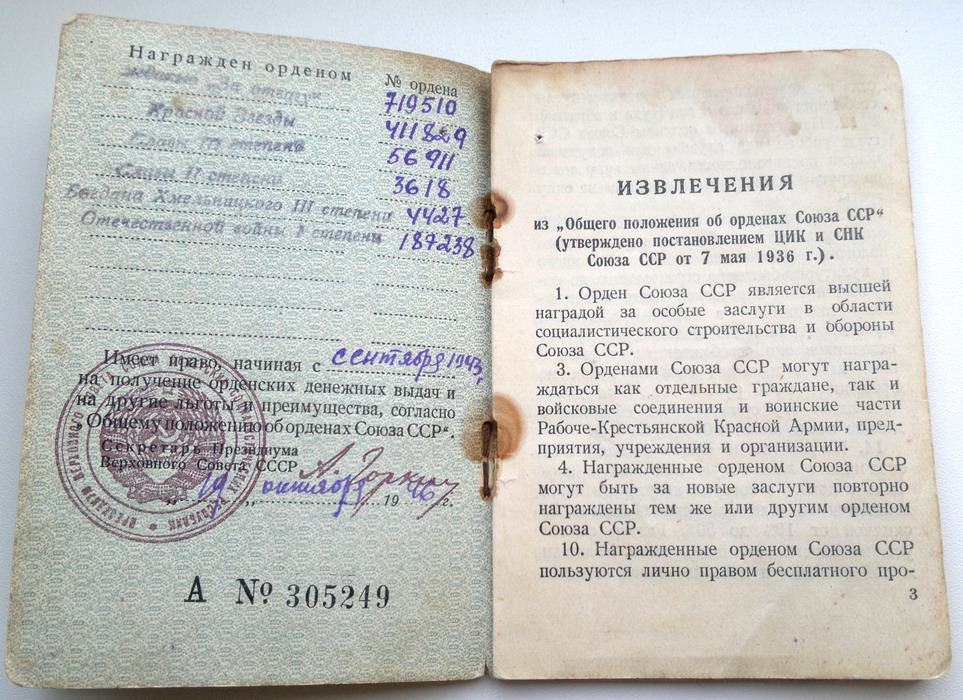 Награжден орденом
№ ордена
медалью „За отвагу“
719510
Красной Звезды
411829
Славы III степени
56911
Славы II степени
3618
Богдана Хмельницкого III степени
4427
Отечественной войны I степени
187238
Имеет право, начиная с сентября 1943,
на получение орденских денежных выдач и
на другие льготы и преимущества, согласно
„Общему положению об орденах Союза ССР“.
Секретарь Президиума
Верховного Совета СССР А. Горкин
„19“ октября 1946 г.
А № 305249
ИЗВЛЕЧЕНИЯ
из „Общего положения об орденах Союза ССР“
(утверждено постановлением ЦИК и СНК
Союза ССР от 7 мая 1936 г.).
1. Орден Союза ССР является высшей
наградой за особые заслуги в области
социалистического строительства и обороны
Союза ССР.
3. Орденами Союза ССР могут награ-
ждаться как отдельные граждане, так и
войсковые соединения и воинские части
Рабоче-Крестьянской Красной Армии, пред-
приятия, учреждения и организации.
4. Награжденные орденом Союза ССР
могут быть за новые заслуги повторно
награждены тем же или другим орденом
Союза ССР.
10. Награжденные орденом Союза ССР
пользуются лично правом бесплатного про-
3